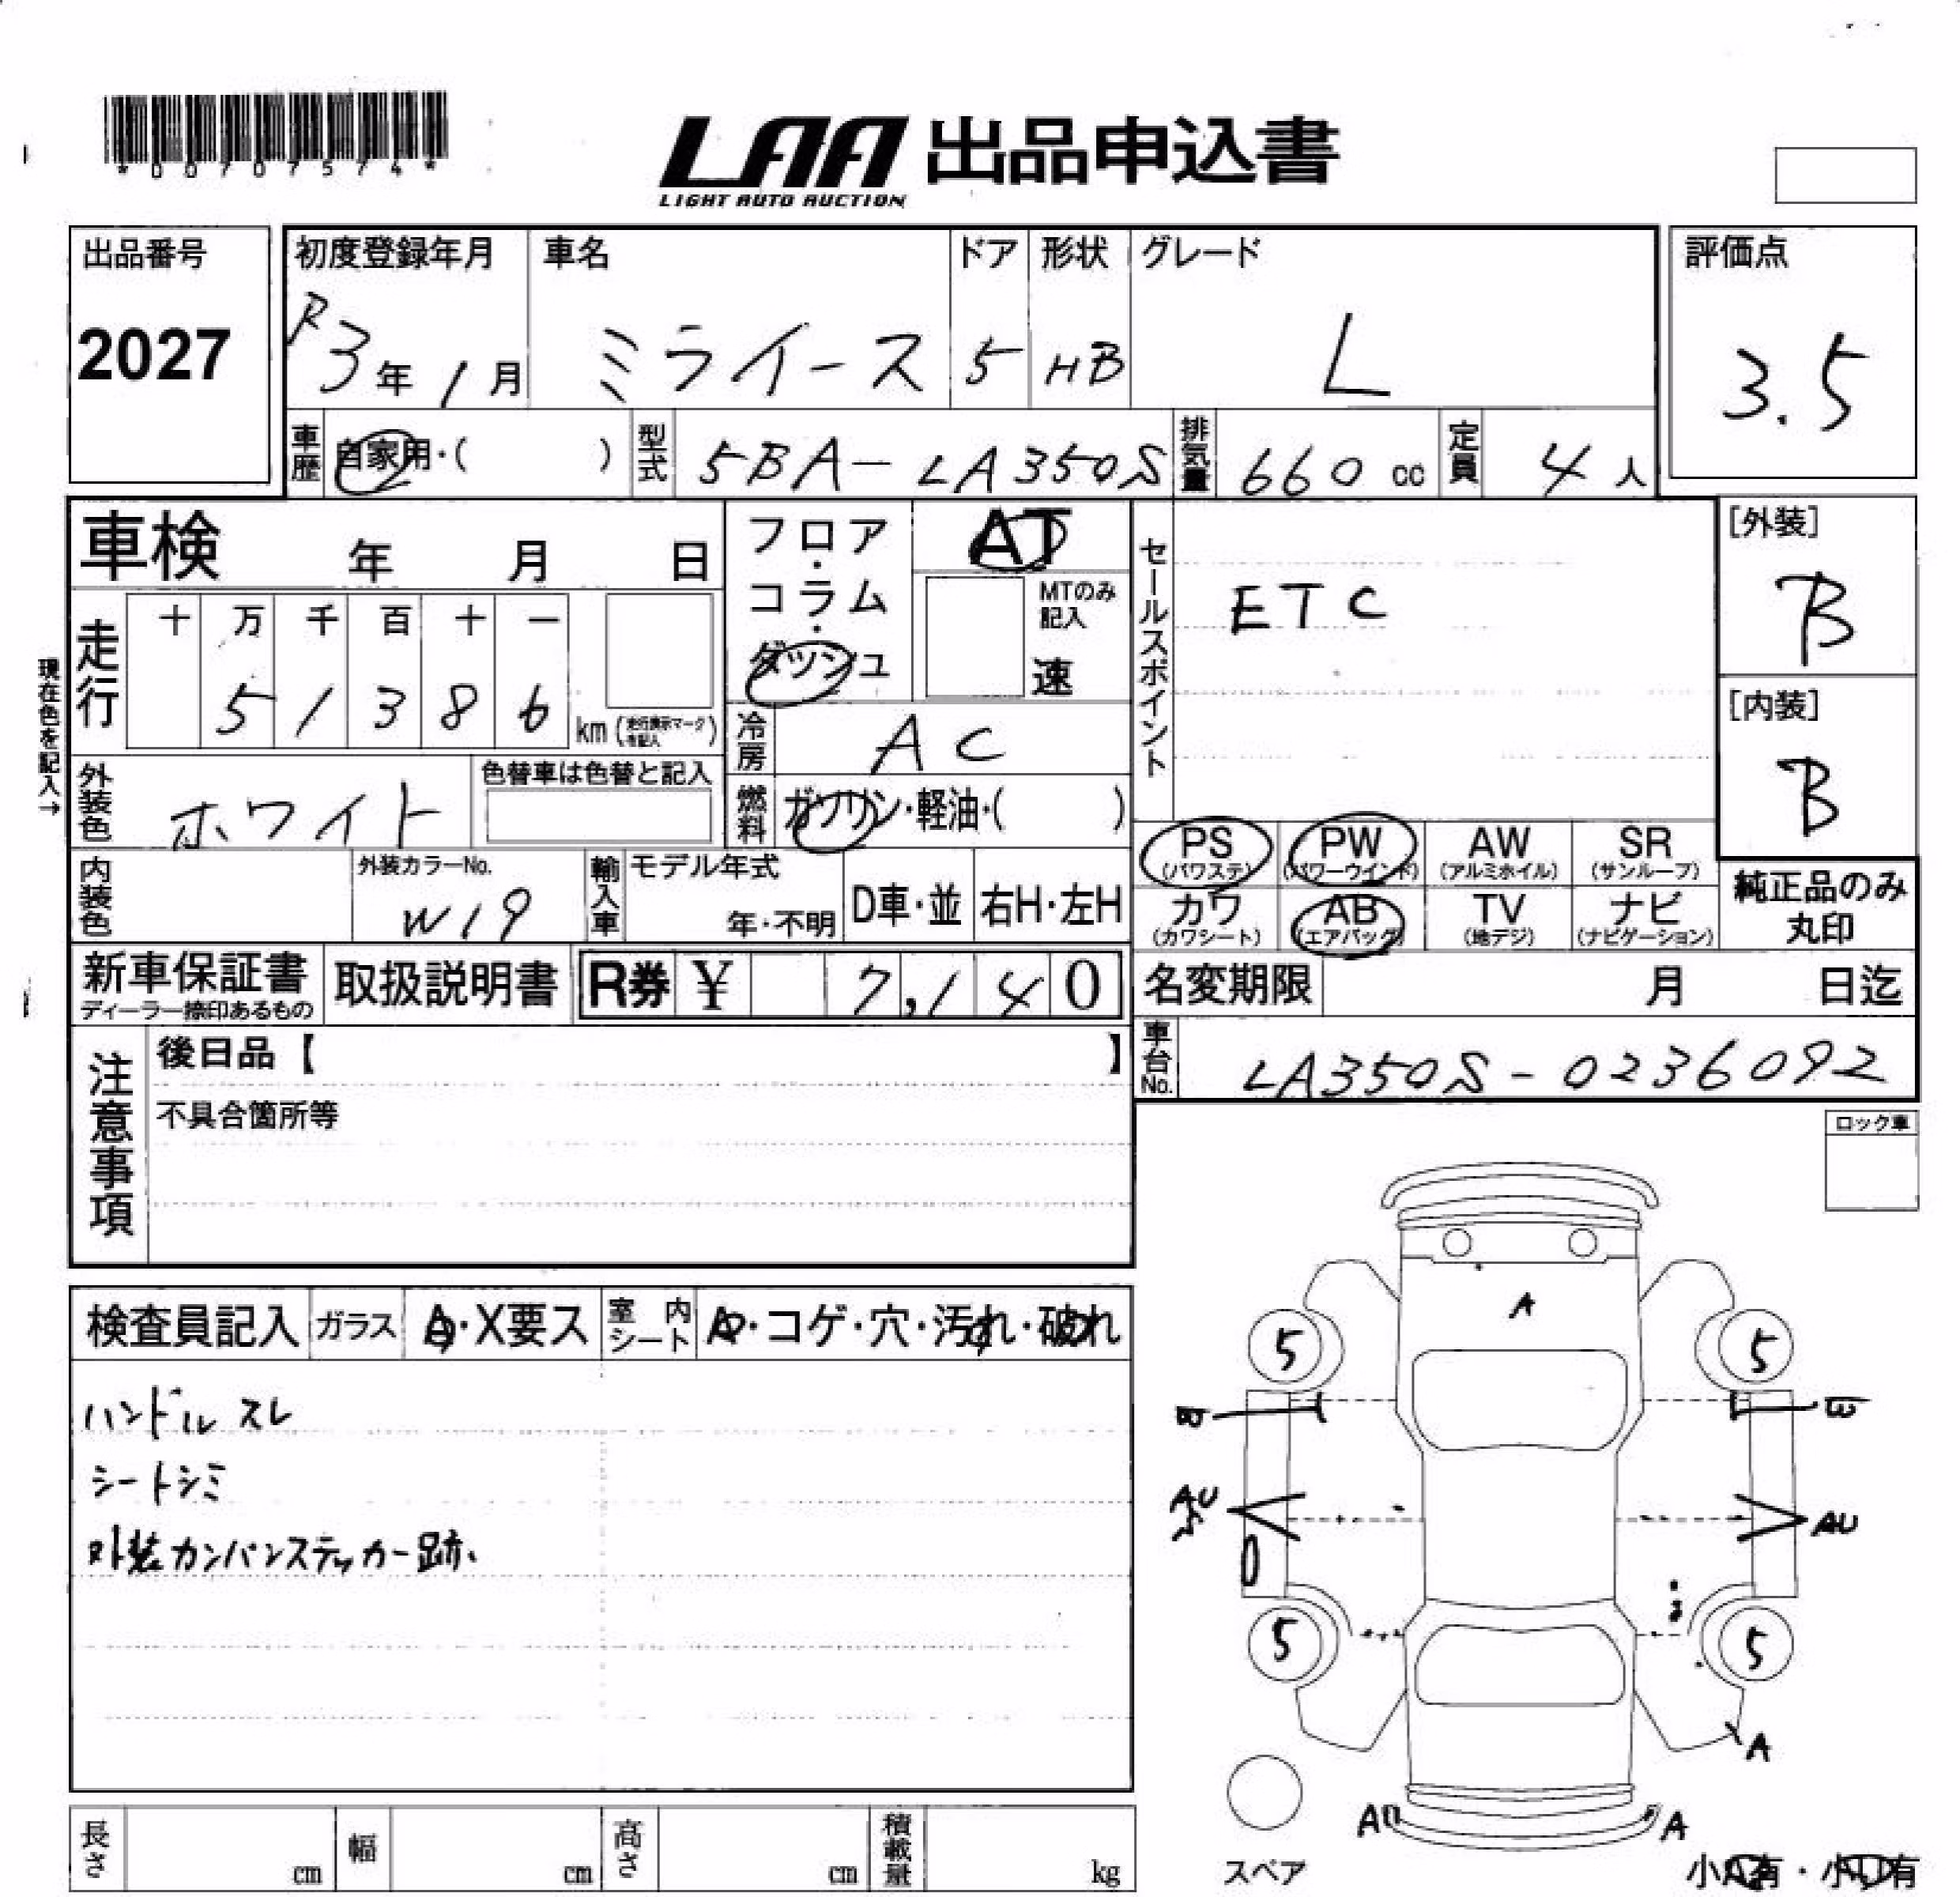 *00707574*
LAA 出品申込書
LIGHT AUTO AUCTION
出品番号
2027
初度登録年月
R3年1月
車名
ミライース
ドア
5
形状
HB
グレード
L
評価点
3.5
車歴
自家用・( )
型式
5BA-LA350S
排気量
660 cc
定員
4人
車検 年 月 日
フロア・コラム・ダッシュ
AT
MTのみ記入
速
セールスポイント
ETC
[外装]
B
[内装]
B
現在色を記入→
走行
十 万 千 百 十 一
5 1 3 8 6
km
冷房
AC
外装色
ホワイト
色替車は色替と記入
燃料
ガソリン・軽油・( )
PS (パワステ)
PW (パワーウインド)
AW (アルミホイル)
SR (サンルーフ)
カワ (カワシート)
AB (エアバッグ)
TV (地デジ)
ナビ (ナビゲーション)
純正品のみ
丸印
内装色
外装カラーNo.
W19
輸入車
モデル年式
年・不明
D車・並
右H・左H
新車保証書
ディーラー捺印あるもの
取扱説明書
R券 ¥ 7,140
名変期限 月 日迄
車台No.
LA350S-0236092
注意事項
後日品【 】
不具合箇所等
ロック車
検査員記入
ガラス
A・X要ス
室内シート
A・コゲ・穴・汚れ・破れ
ハンドルスレ
シートシミ
外装カンバンステッカー跡
A
5
5
B
B
AU
AU
5
5
A
A
A
スペア
小A有・小U有
長さ cm
幅 cm
高さ cm
積載量 kg